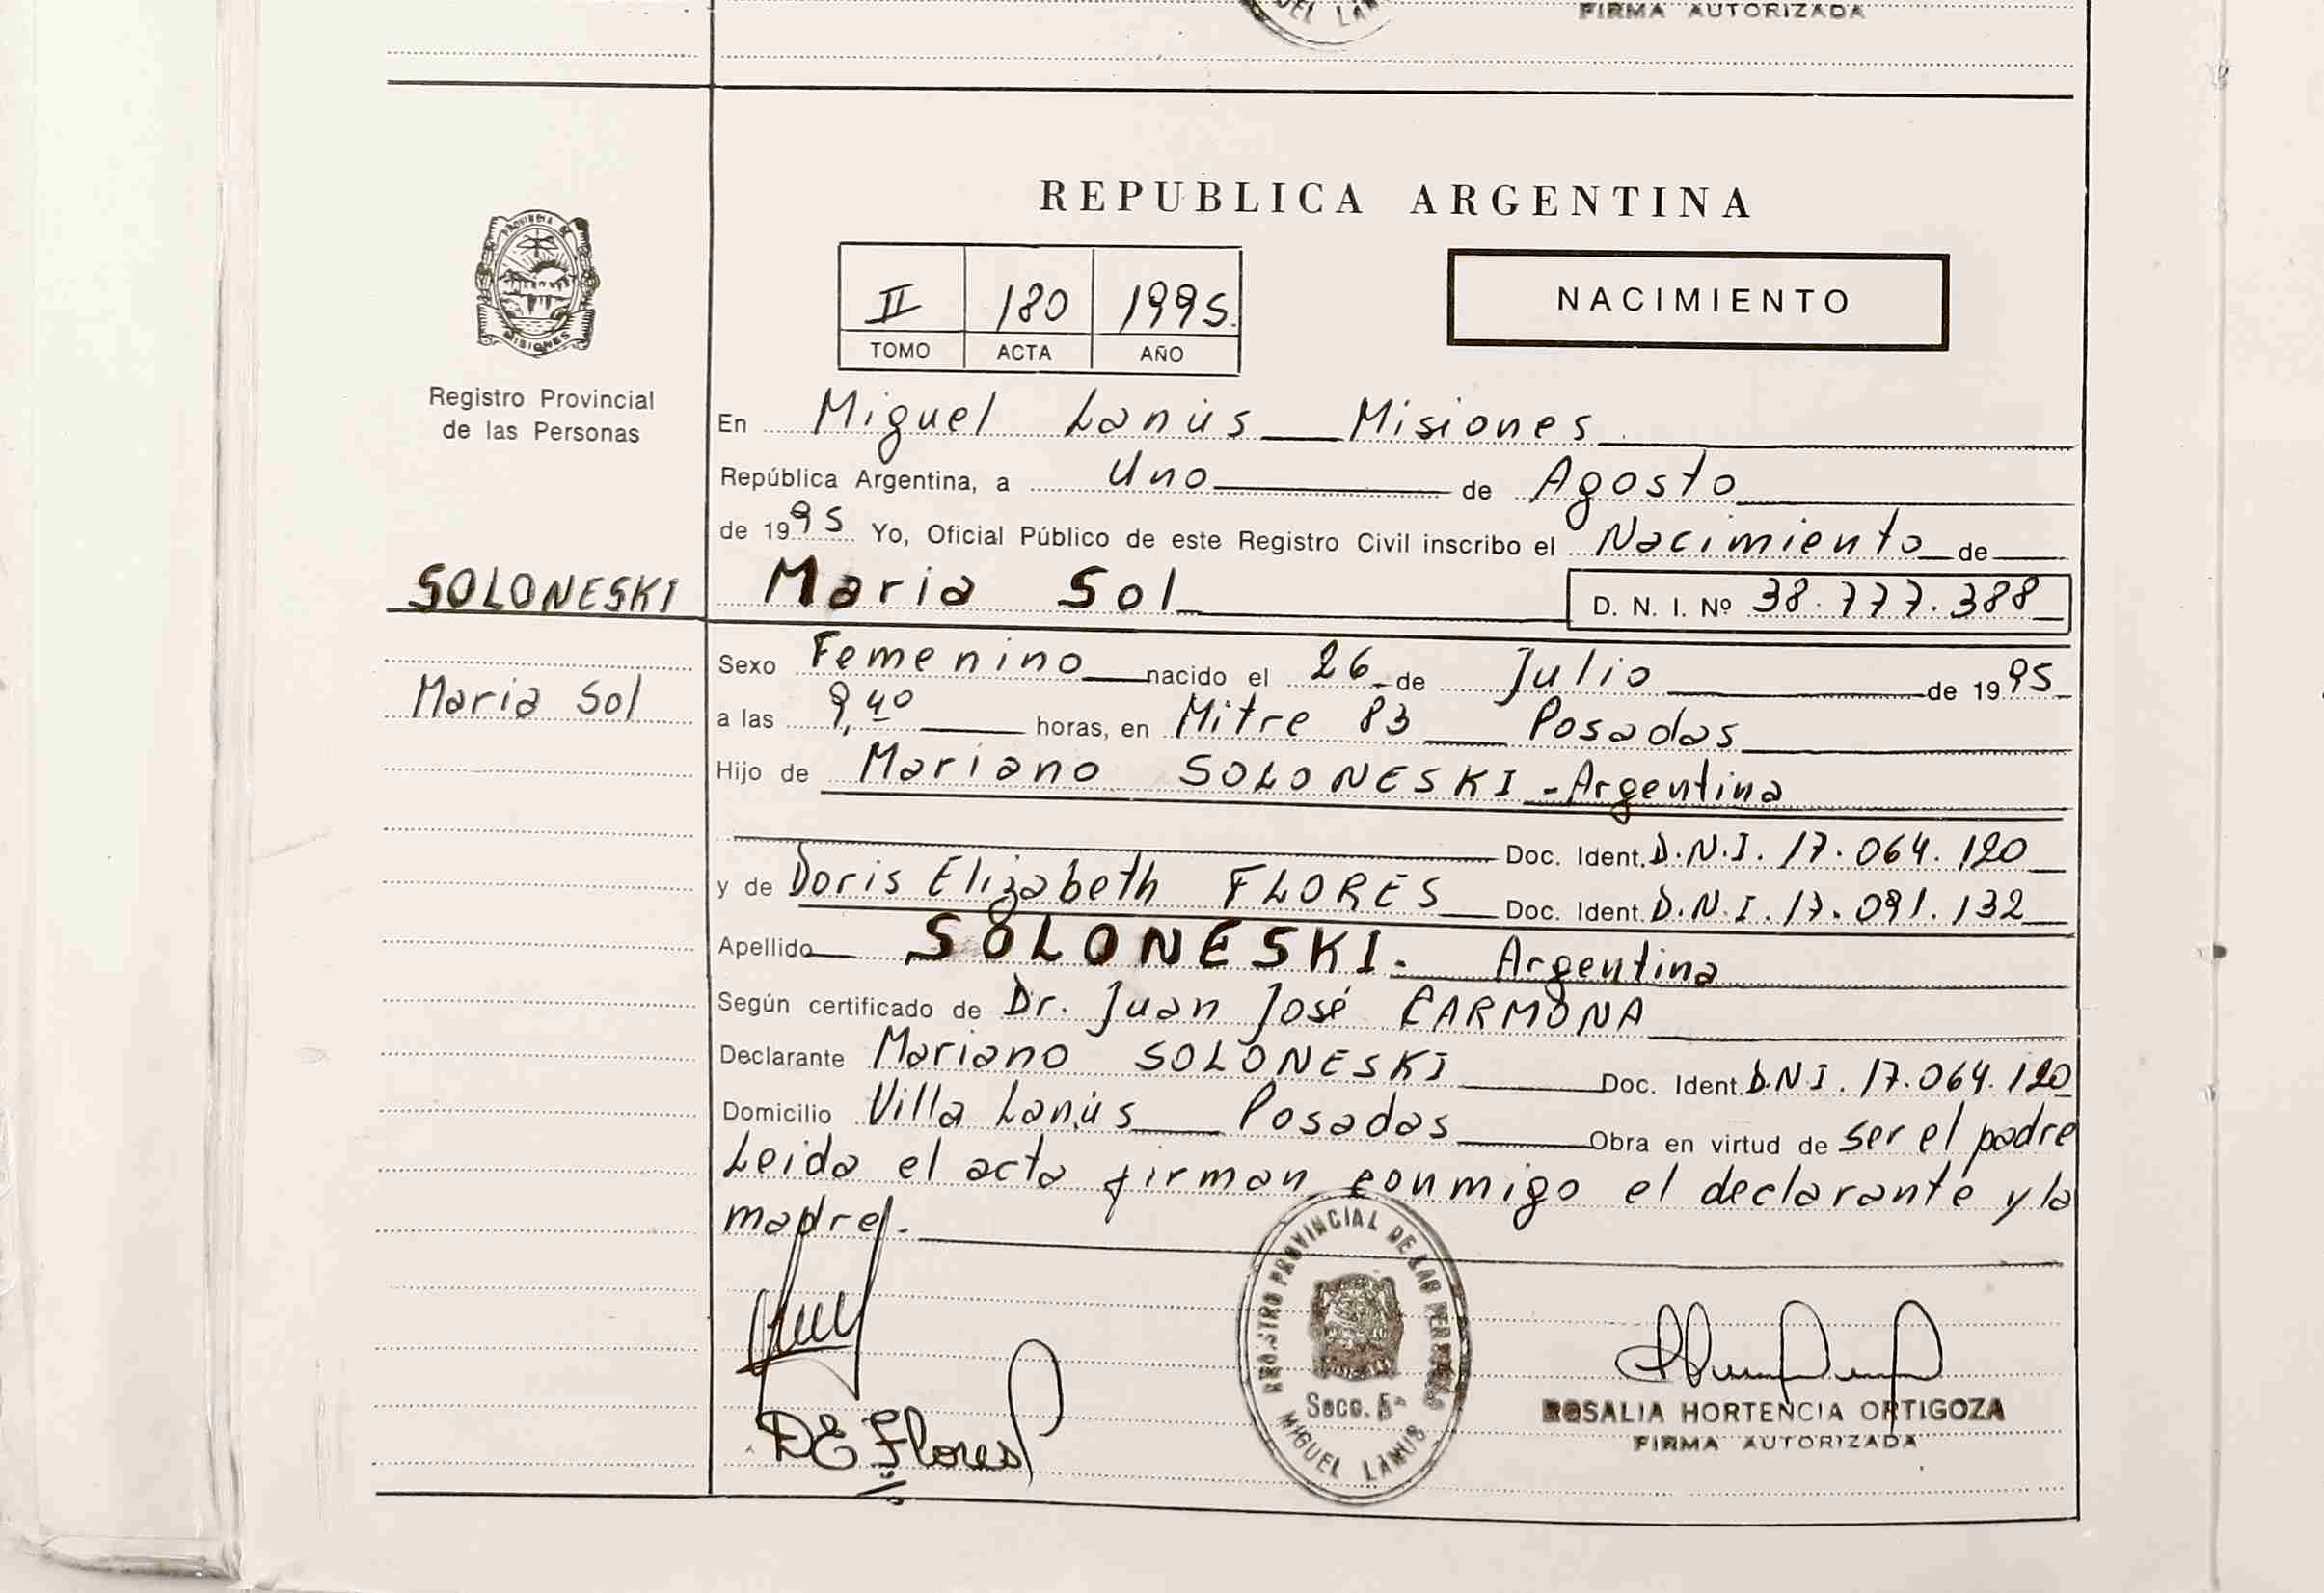 FIRMA AUTORIZADA
REPUBLICA ARGENTINA
II 180 1995
TOMO ACTA AÑO
NACIMIENTO
PROVINCIA DE
MISIONES
Registro Provincial
de las Personas
SOLONESKI
Maria Sol
En Miguel Lanús Misiones
República Argentina, a Uno de Agosto
de 1995 Yo, Oficial Público de este Registro Civil inscribo el Nacimiento de
Maria Sol D. N. I. Nº 38.777.388
Sexo Femenino nacido el 26 de Julio de 1995
a las 9,40 horas, en Mitre 83 Posadas
Hijo de Mariano SOLONESKI - Argentina
Doc. Ident. D.N.I. 17.064.120
y de Doris Elizabeth FLORES Doc. Ident. D.N.I. 17.091.132
Apellido SOLONESKI. Argentina
Según certificado de Dr. Juan José CARMONA
Declarante Mariano SOLONESKI Doc. Ident. D.N.I. 17.064.120
Domicilio Villa Lanús Posadas Obra en virtud de ser el padre
Leida el acta firman conmigo el declarante y la
madre.
DE Flores
REGISTRO PROVINCIAL DE LAS PERSONAS
Secc. 5ª
MIGUEL LANUS
ROSALIA HORTENCIA ORTIGOZA
FIRMA AUTORIZADA